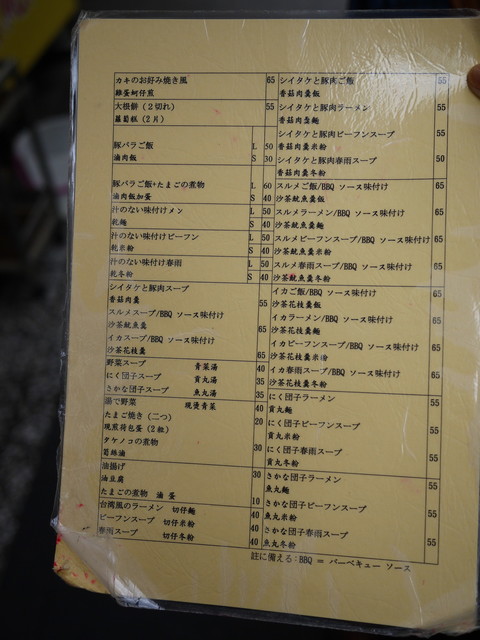 カキのお好み焼き風 65
雞蛋蚵仔煎
大根餅（2切れ） 55
蘿蔔糕（2片）
豚バラご飯 L 50
滷肉飯 S 30
豚バラご飯+たまごの煮物 L 60
滷肉飯加蛋 S 40
汁のない味付けメン L 50
乾麵 S 40
汁のない味付けビーフン L 50
乾米粉 S 40
汁のない味付け春雨 L 50
乾冬粉 S 40
シイタケと豚肉スープ
香菇肉羹 55
スルメスープ/BBQ ソース味付け
沙茶魷魚羹 65
イカスープ/BBQ ソース味付け
沙茶花枝羹 65
野菜スープ 青菜湯 40
にく団子スープ 貢丸湯 35
さかな団子スープ 魚丸湯 35
湯で野菜 現燙青菜 40
たまご焼き（二つ） 20
現煎荷包蛋（2粒）
タケノコの煮物 30
筍絲油
油揚げ 30
油豆腐
たまごの煮物 滷蛋 10
台湾風のラーメン 切仔麵 40
ビーフンスープ 切仔米粉 40
春雨スープ 切仔冬粉 40
シイタケと豚肉ご飯 55
香菇肉羹飯
シイタケと豚肉ラーメン 55
香菇肉羹麵
シイタケと豚肉ビーフンスープ 55
香菇肉羹米粉
シイタケと豚肉春雨スープ 50
香菇肉羹冬粉
スルメご飯/BBQ ソース味付け 65
沙茶魷魚羹飯
スルメラーメン/BBQ ソース味付け 65
沙茶魷魚羹麵
スルメビーフスープ/BBQ ソース味付け 65
沙茶魷魚羹米粉
スルメ春雨スープ/BBQ ソース味付け 65
沙茶魷魚羹冬粉
イカご飯/BBQ ソース味付け 65
沙茶花枝羹飯
イカラーメン/BBQ ソース味付け 65
沙茶花枝羹麵
イカビーフンスープ/BBQ ソース味付け 65
沙茶花枝羹米粉
イカ春雨スープ/BBQ ソース味付け 65
沙茶花枝羹冬粉
にく団子ラーメン 55
貢丸麵
にく団子ビーフンスープ 55
貢丸米粉
にく団子春雨スープ 55
貢丸冬粉
さかな団子ラーメン 55
魚丸麵
さかな団子ビーフンスープ 55
魚丸米粉
さかな団子春雨スープ 55
魚丸冬粉
註に備える：BBQ = バーベキュー ソース